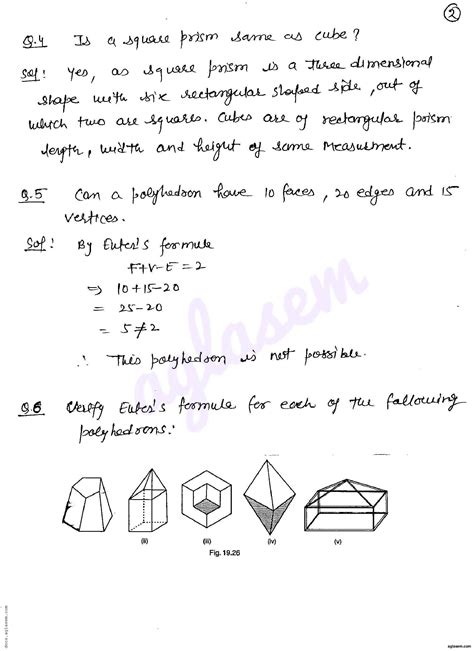 2
Q.4 Is a square prism same as cube?
Sol! Yes, as square prism is a three dimensional
shape with six rectangular shaped side, out of
which two are squares. Cubes are of rectangular prism
length, width and height of same measurment.
Q.5 Can a polyhedron have 10 faces, 20 edges and 15
vertices.
Sol! By Euler's formula
F+V-E=2
⇒ 10+15-20
= 25-20
= 5≠2
∴ This polyhedron is not possible.
Q.6 Verify Euler's formula for each of the following
polyhedrons:
(ii) (iii) (iv) (v)
Fig. 19.26
aglasem
docs.aglasem.com
aglasem.com